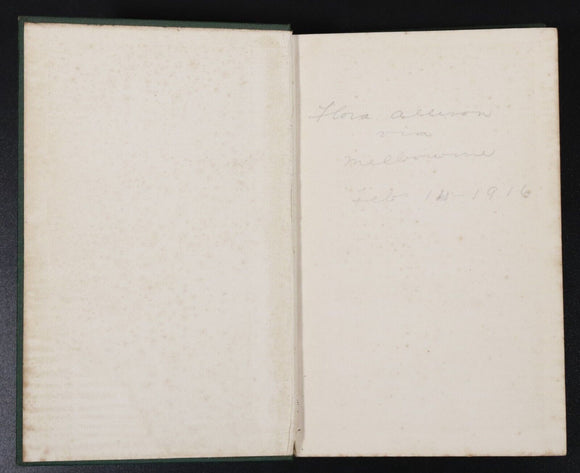 Flora Allison
via
Melbourne
Feb 14 1916